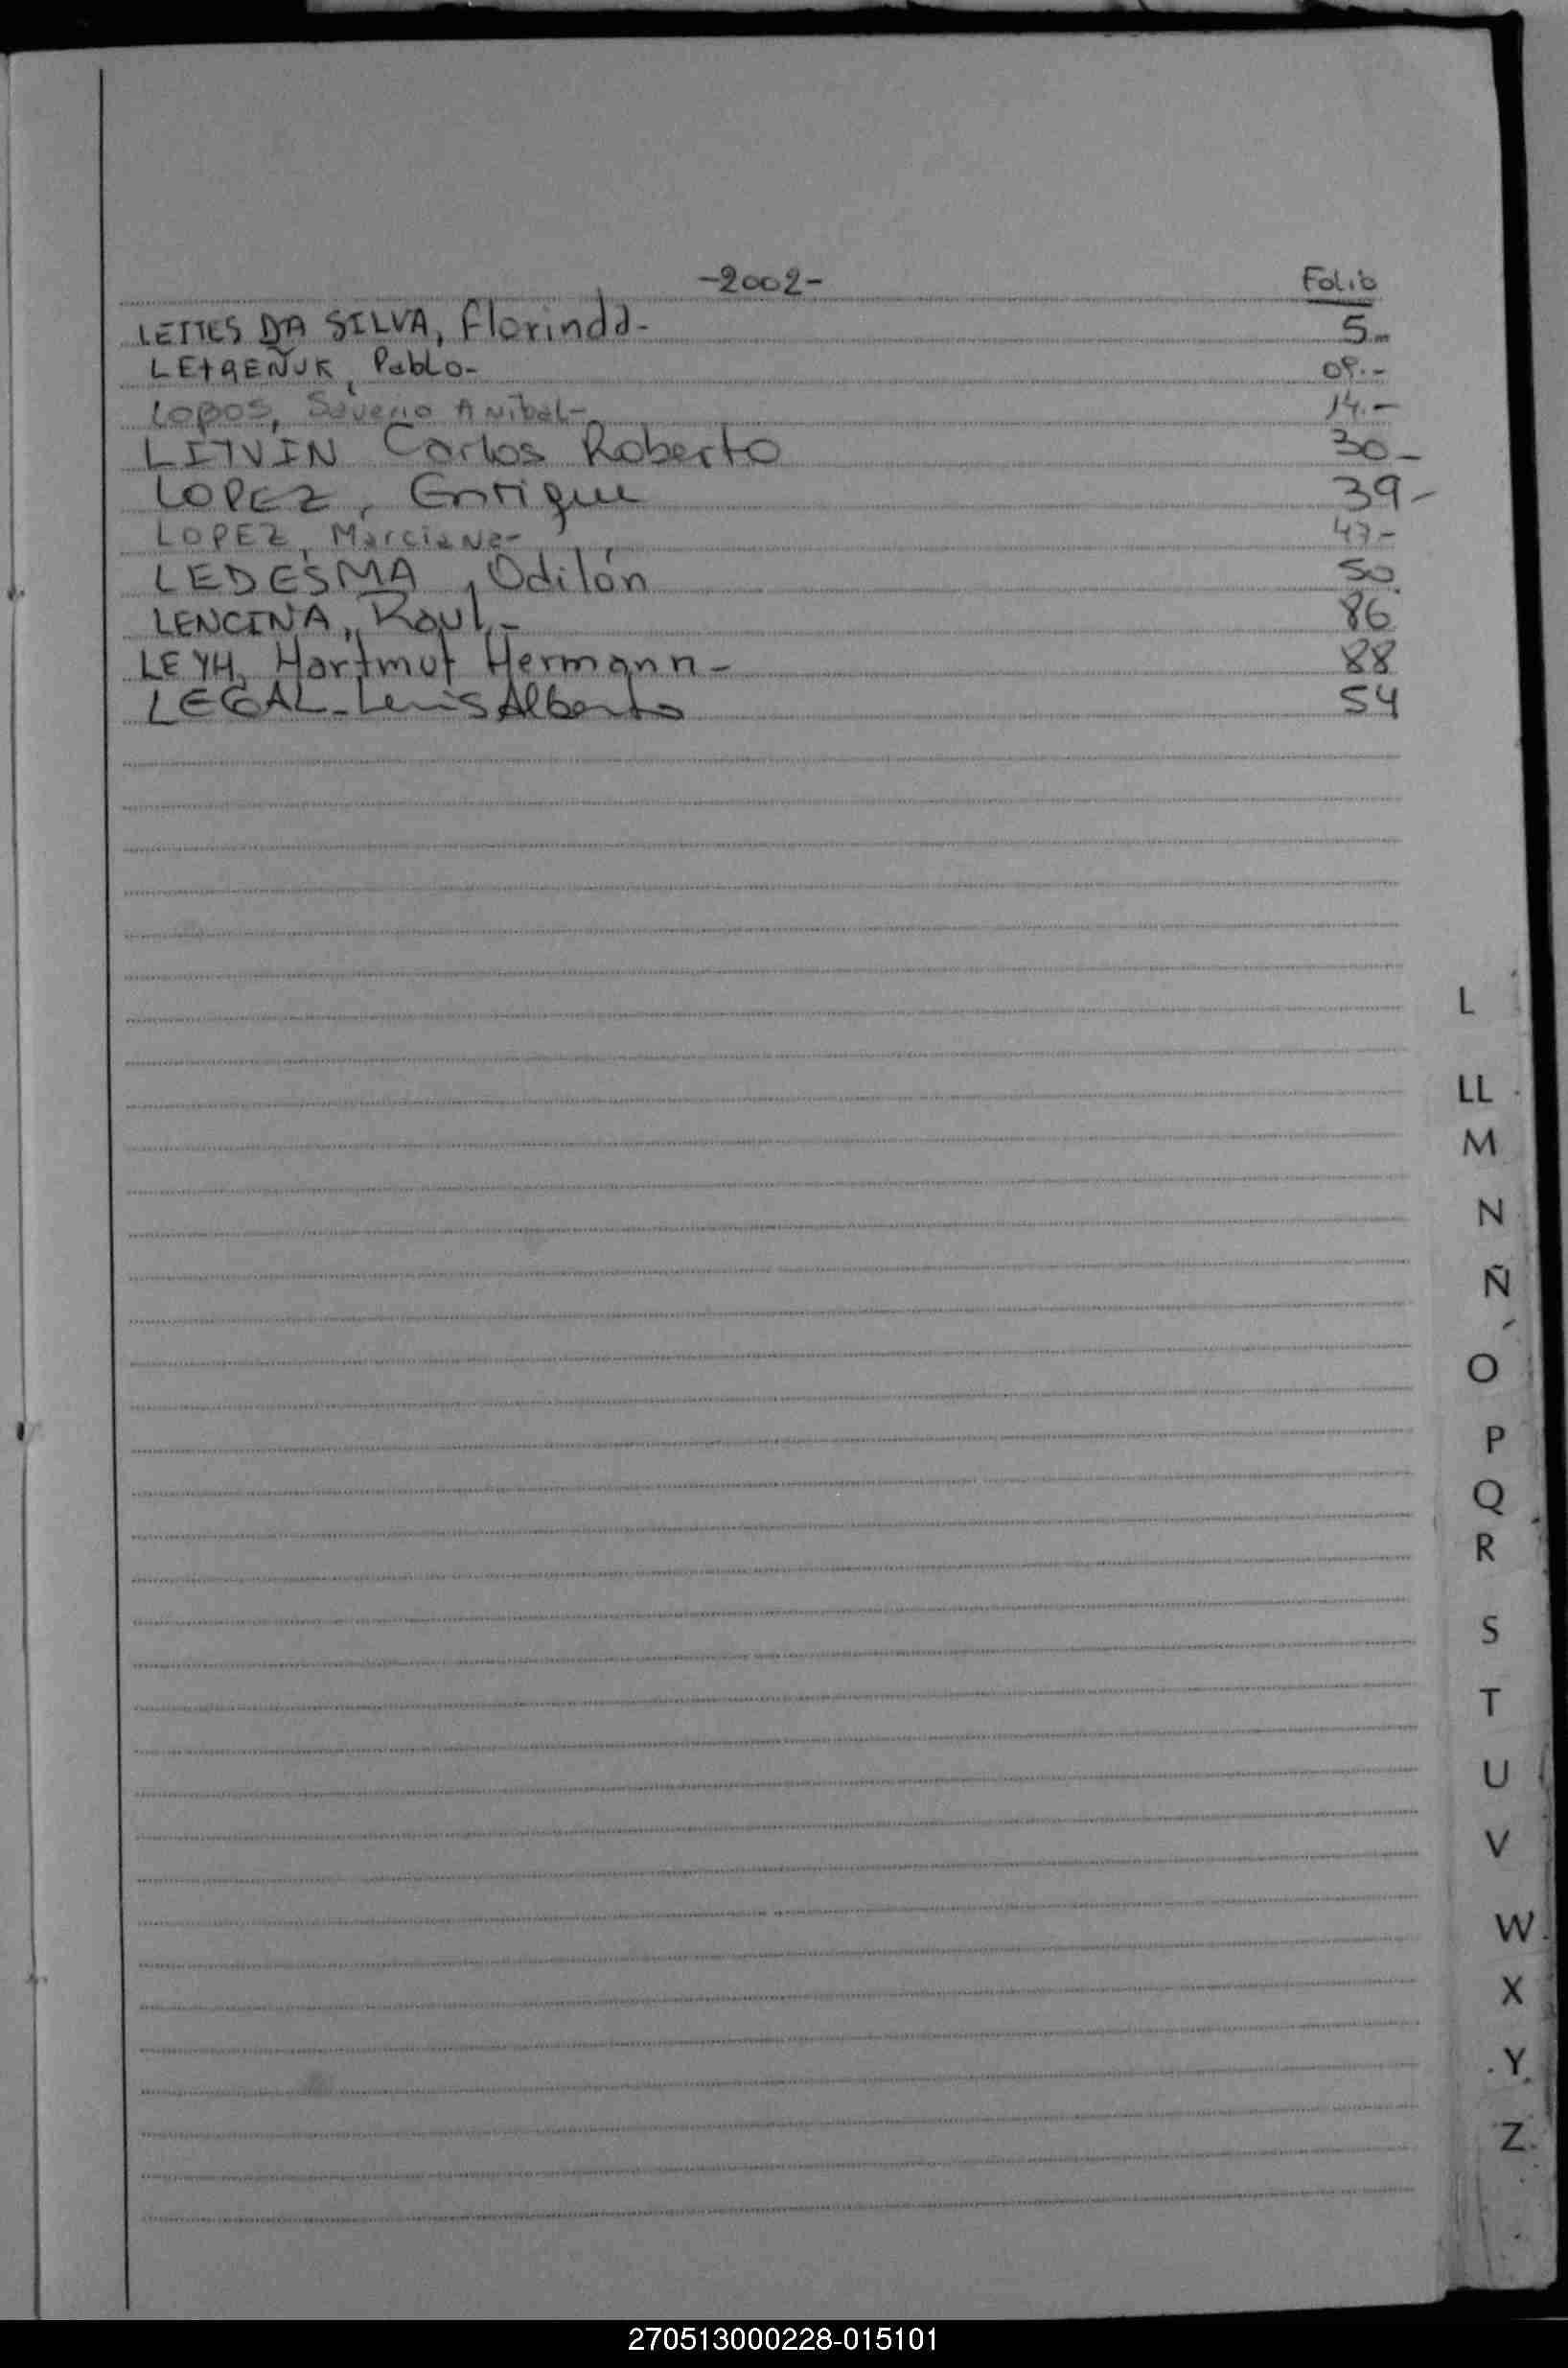 -2002- Folio
LEITES DA SILVA, Florinda- 5.-
Pablo-
LOBOS, Saverio Anibal- 14.-
LITVIN Carlos Roberto 30-
LOPEZ, Enrique 39-
LOPEZ, Marciana- 47-
LEDESMA, Odilón 50.
LENCINA, Raul.- 86
LEYH, Hartmut Hermann- 88
LEGAL- Luis Alberto 54
L
LL
M
N
Ñ
O
P
Q
R
S
T
U
V
W
X
Y
Z
270513000228-015101